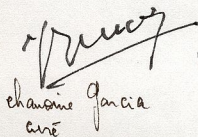 chanoine Garcia
curé